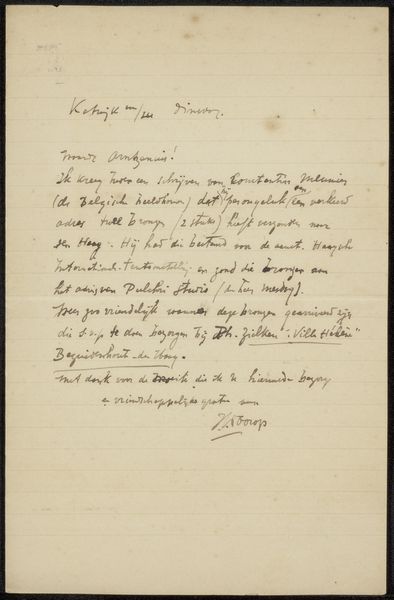 Katwijk an/zee Dinsdag.
Waarde Arntzenius!
Ik kreeg heden een schrijven van Constantin Meunier
(de Belgische beeldhouwer) dat hij per ongeluk aan een verkeerd
adres twee bronzen (2 stuks) heeft verzonden naar
den Haag. Hij had die bestemd voor de aanst. Haagsche
Internationale tentoonstelling en zond die bronzen aan
het adres van Pulchri Studio (den heer Mesdag).
Wees zoo vriendelijk wanneer deze bronzen gearriveerd zijn
die s.v.p. te doen bezorgen bij Ph. Zilcken "Villa Hélène"
Bezuidenhout den Haag.
Met dank voor de moeite die ik U hiermede bezorg
en vriendschappelijke groeten van
JThToorop